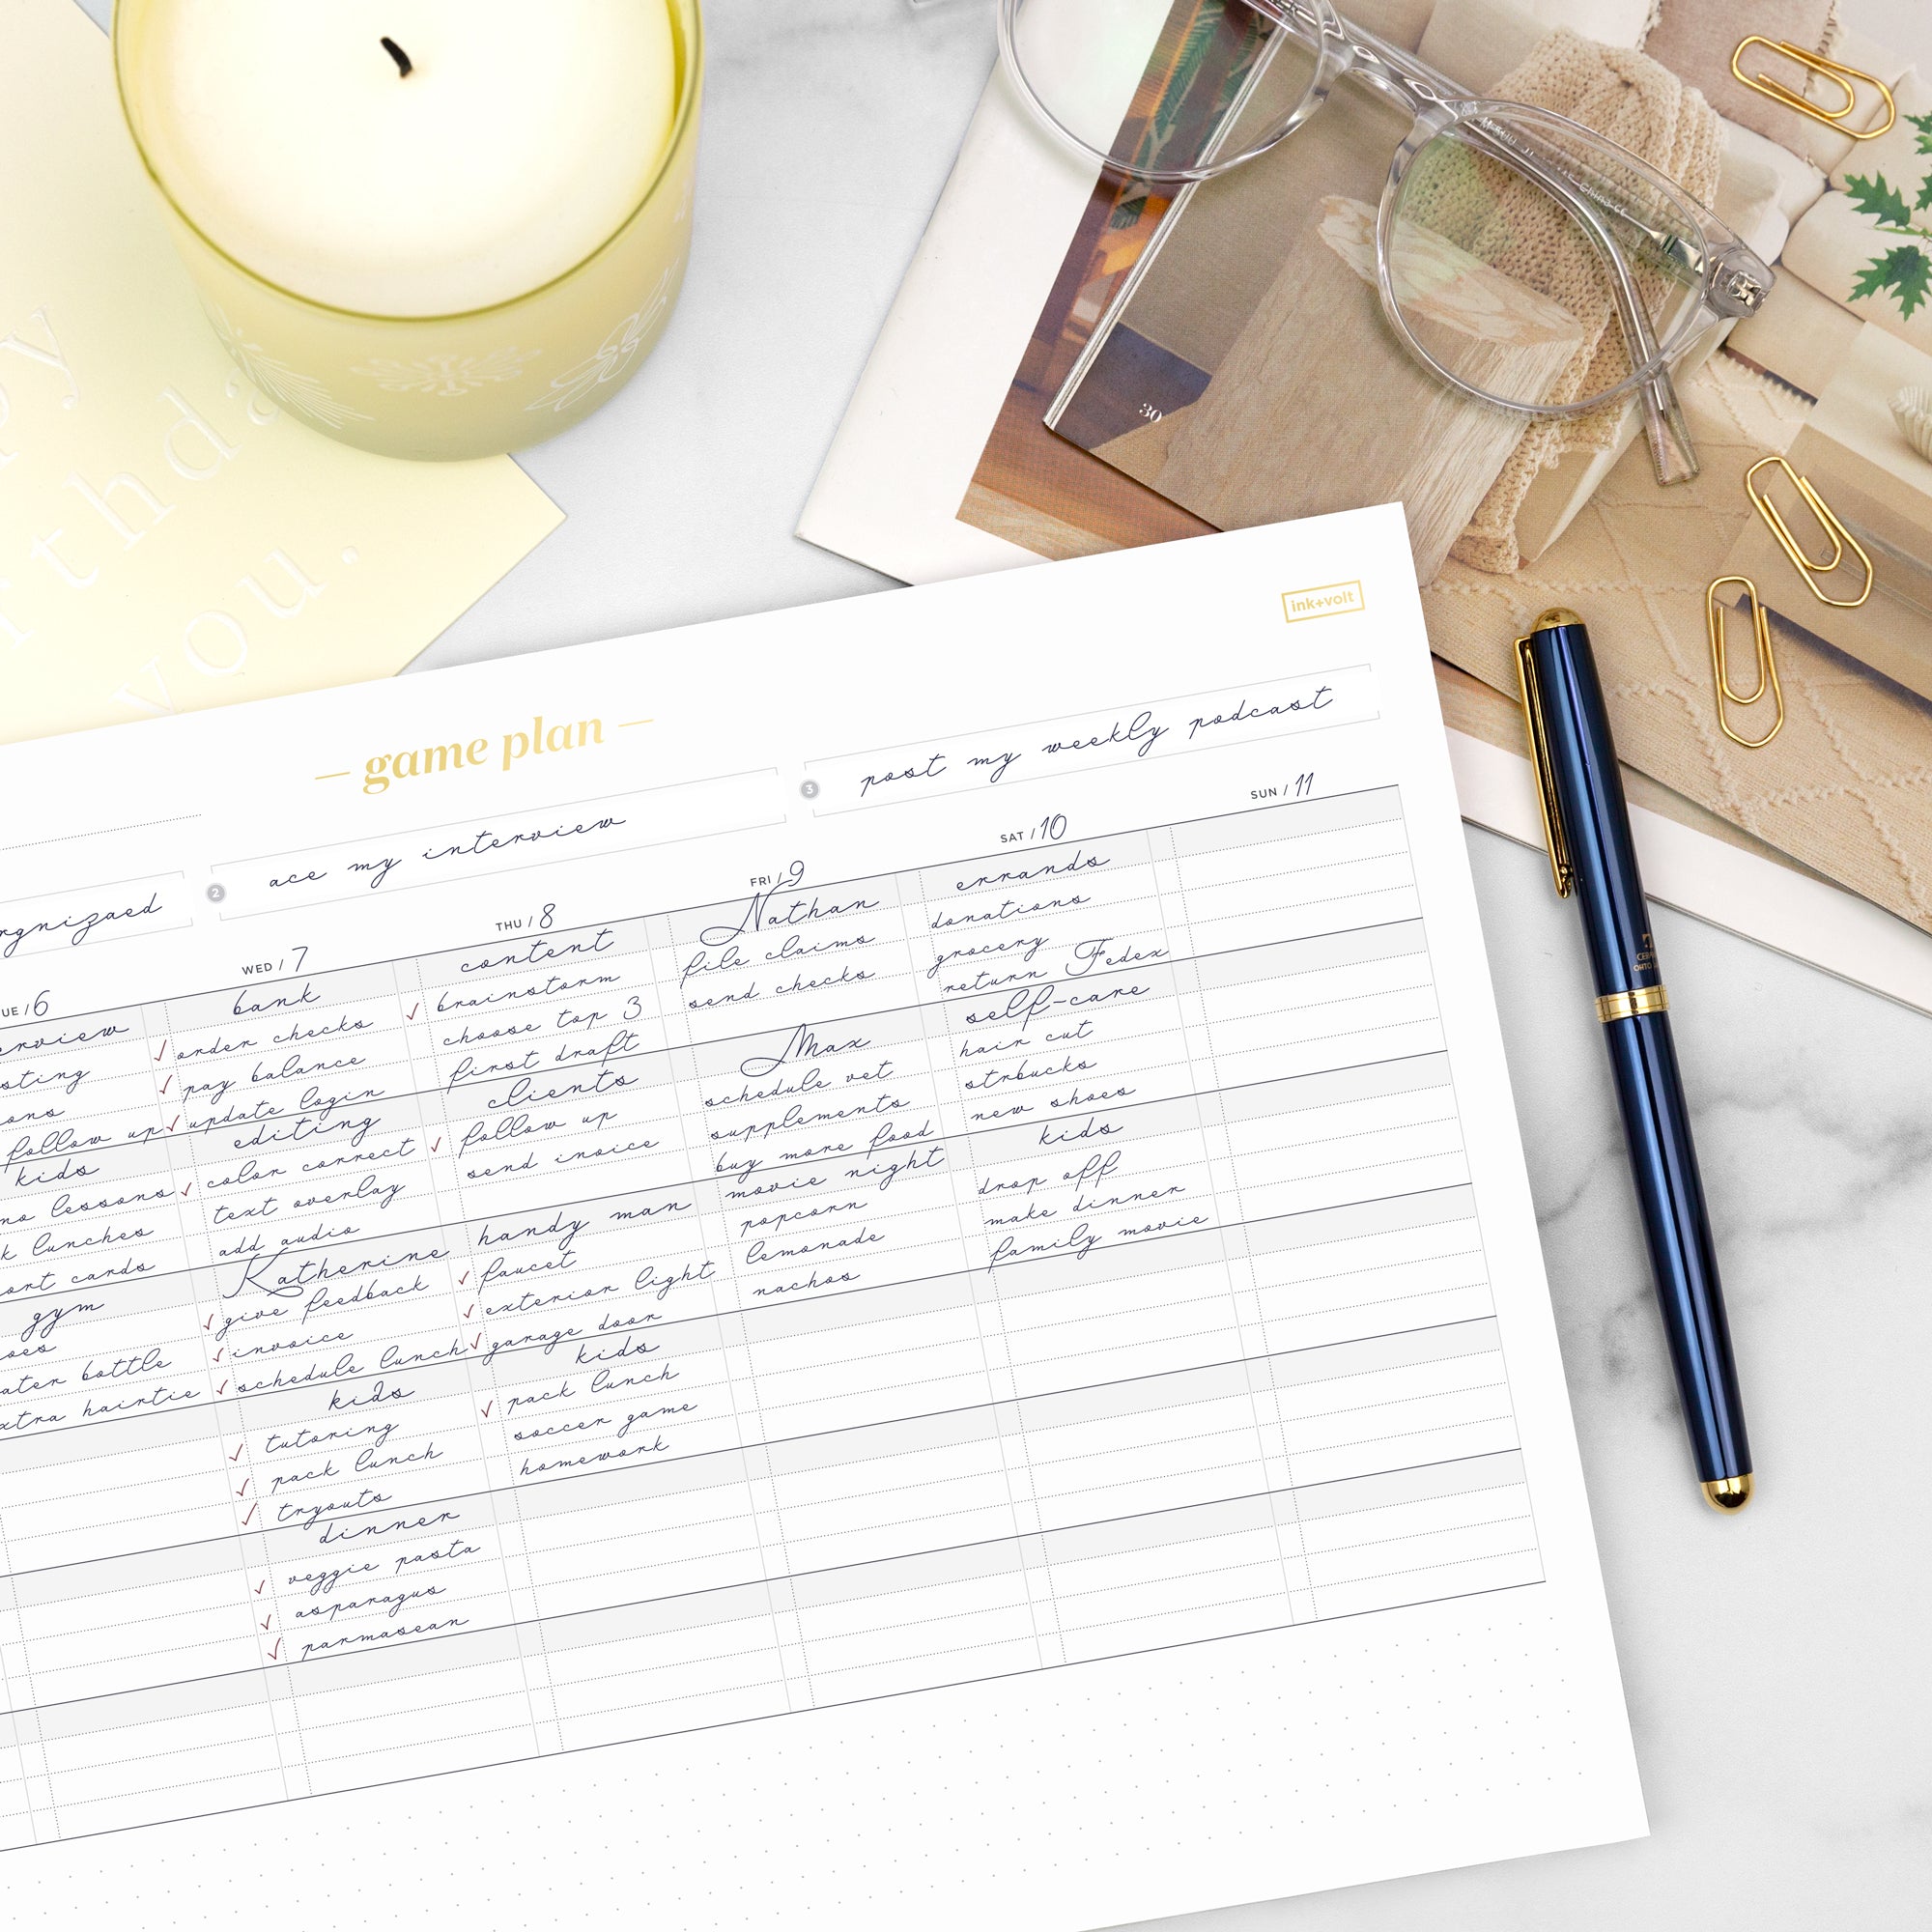 you.
30
ink+volt
— game plan —
3 post my weekly podcast
2 ace my interview
orgnizaed
UE / 6
WED / 7
THU / 8
FRI / 9
SAT / 10
SUN / 11
follow up
kids
lessons
lunches
cards
gym
bottle
hairtie
bank
✓ order checks
✓ pay balance
✓ update login
editing
✓ color correct
text overlay
add audio
Katherine
✓ give feedback
✓ invoice
✓ schedule lunch
kids
✓ tutoring
✓ pack lunch
✓ tryouts
dinner
✓ veggie pasta
✓ asparagus
✓ parmasean
content
✓ brainstorm
choose top 3
first draft
clients
✓ follow up
send inoice
handy man
✓ faucet
✓ exterior light
✓ garage door
kids
✓ pack lunch
soccer game
homework
Nathan
file claims
send checks
Max
schedule vet
supplements
buy more food
movie night
popcorn
lemonade
nachos
errands
donations
grocery
return Fedex
self-care
hair cut
strbucks
new shoes
kids
drop off
make dinner
family movie